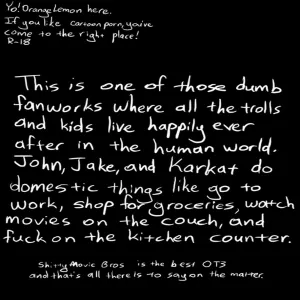 Yo! OrangeLemon here.
If you like cartoon porn, you've
come to the right place!
R-18
This is one of those dumb
fanworks where all the trolls
and kids live happily ever
after in the human world.
John, Jake, and Karkat do
domestic things like go to
work, shop for groceries, watch
movies on the couch, and
fuck on the kitchen counter.
Shitty Movie Bros is the best OT3
and that's all there is to say on the matter.